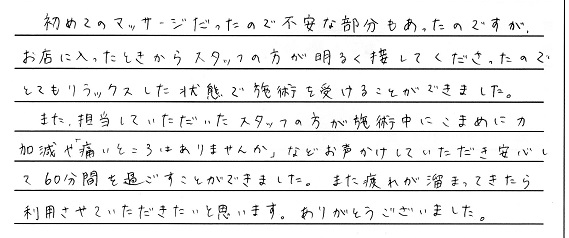 初めてのマッサージだったので不安な部分もあったのですが、
お店に入ったときからスタッフの方が明るく接してくださったので
とてもリラックスした状態で施術を受けることができました。
また、担当していただいたスタッフの方が施術中にこまめに力
加減や「痛いところはありませんか」などお声かけしていただき安心し
て60分間を過ごすことができました。また疲れが溜まってきたら
利用させていただきたいと思います。ありがとうございました。